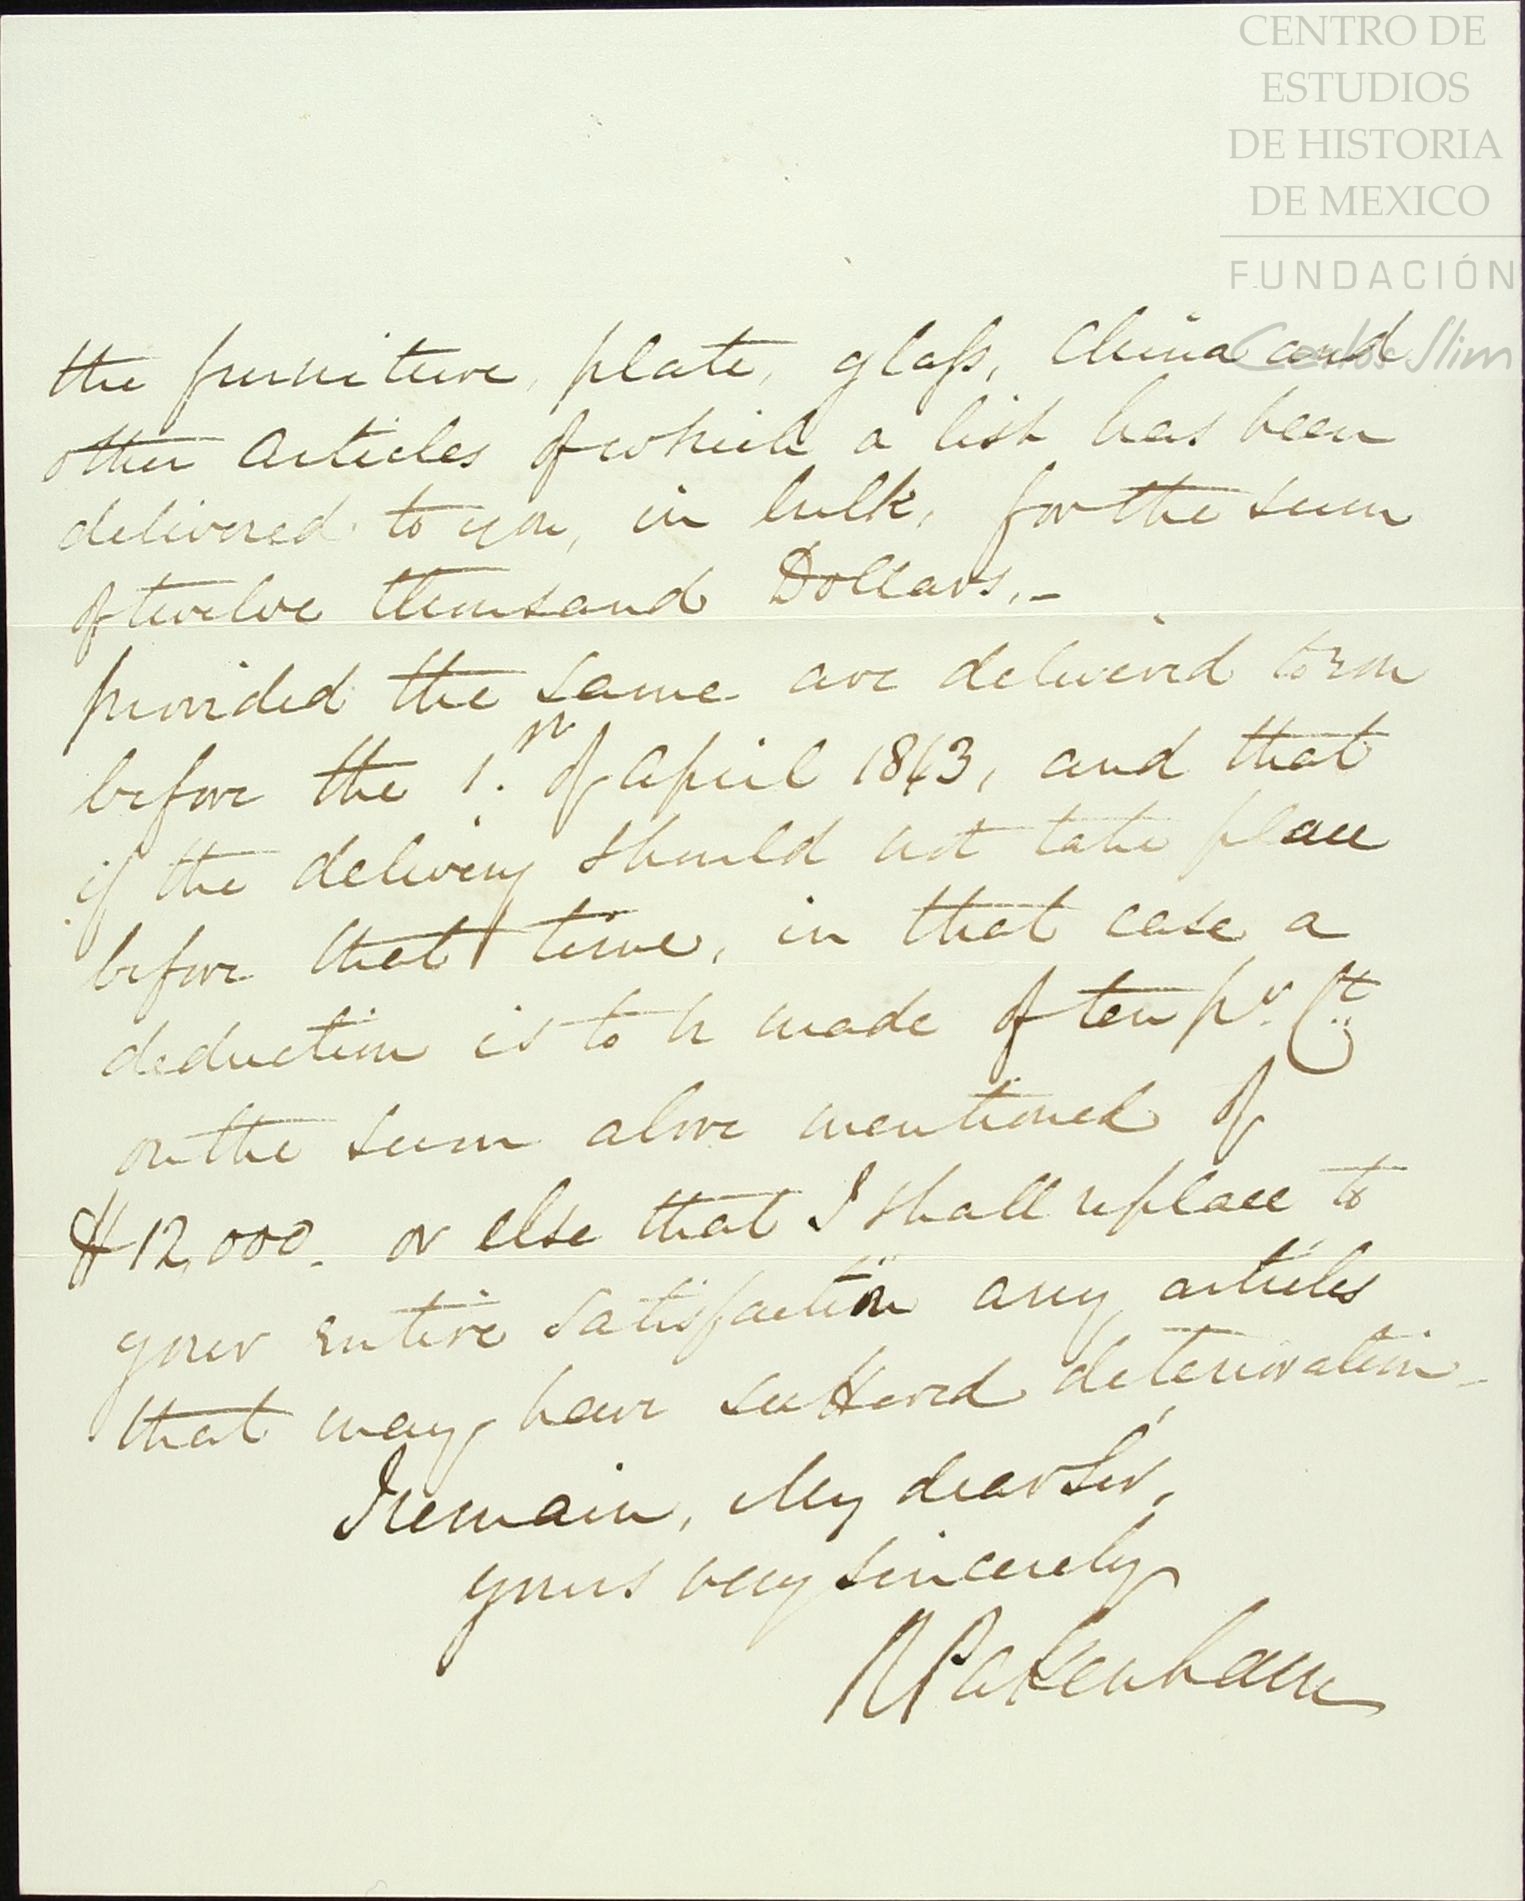 CENTRO DE
ESTUDIOS
DE HISTORIA
DE MEXICO
FUNDACIÓN
Carlos Slim
the furniture, plate, glaſs, China and
other articles of which a list has been
delivered to you, in bulk, for the sum
of twelve thousand Dollars.–
provided the same are delivered to you
before the 1.st of April 1843, and that
if the delivery should not take place
before that time, in that case a
deduction is to be made of ten pr. Ct.
on the sum above mentioned of
$12,000. or else that I shall replace to
your entire satisfaction any articles
that may have suffered deterioration–
I remain, My dear Sir,
yours very sincerely
R Pakenham